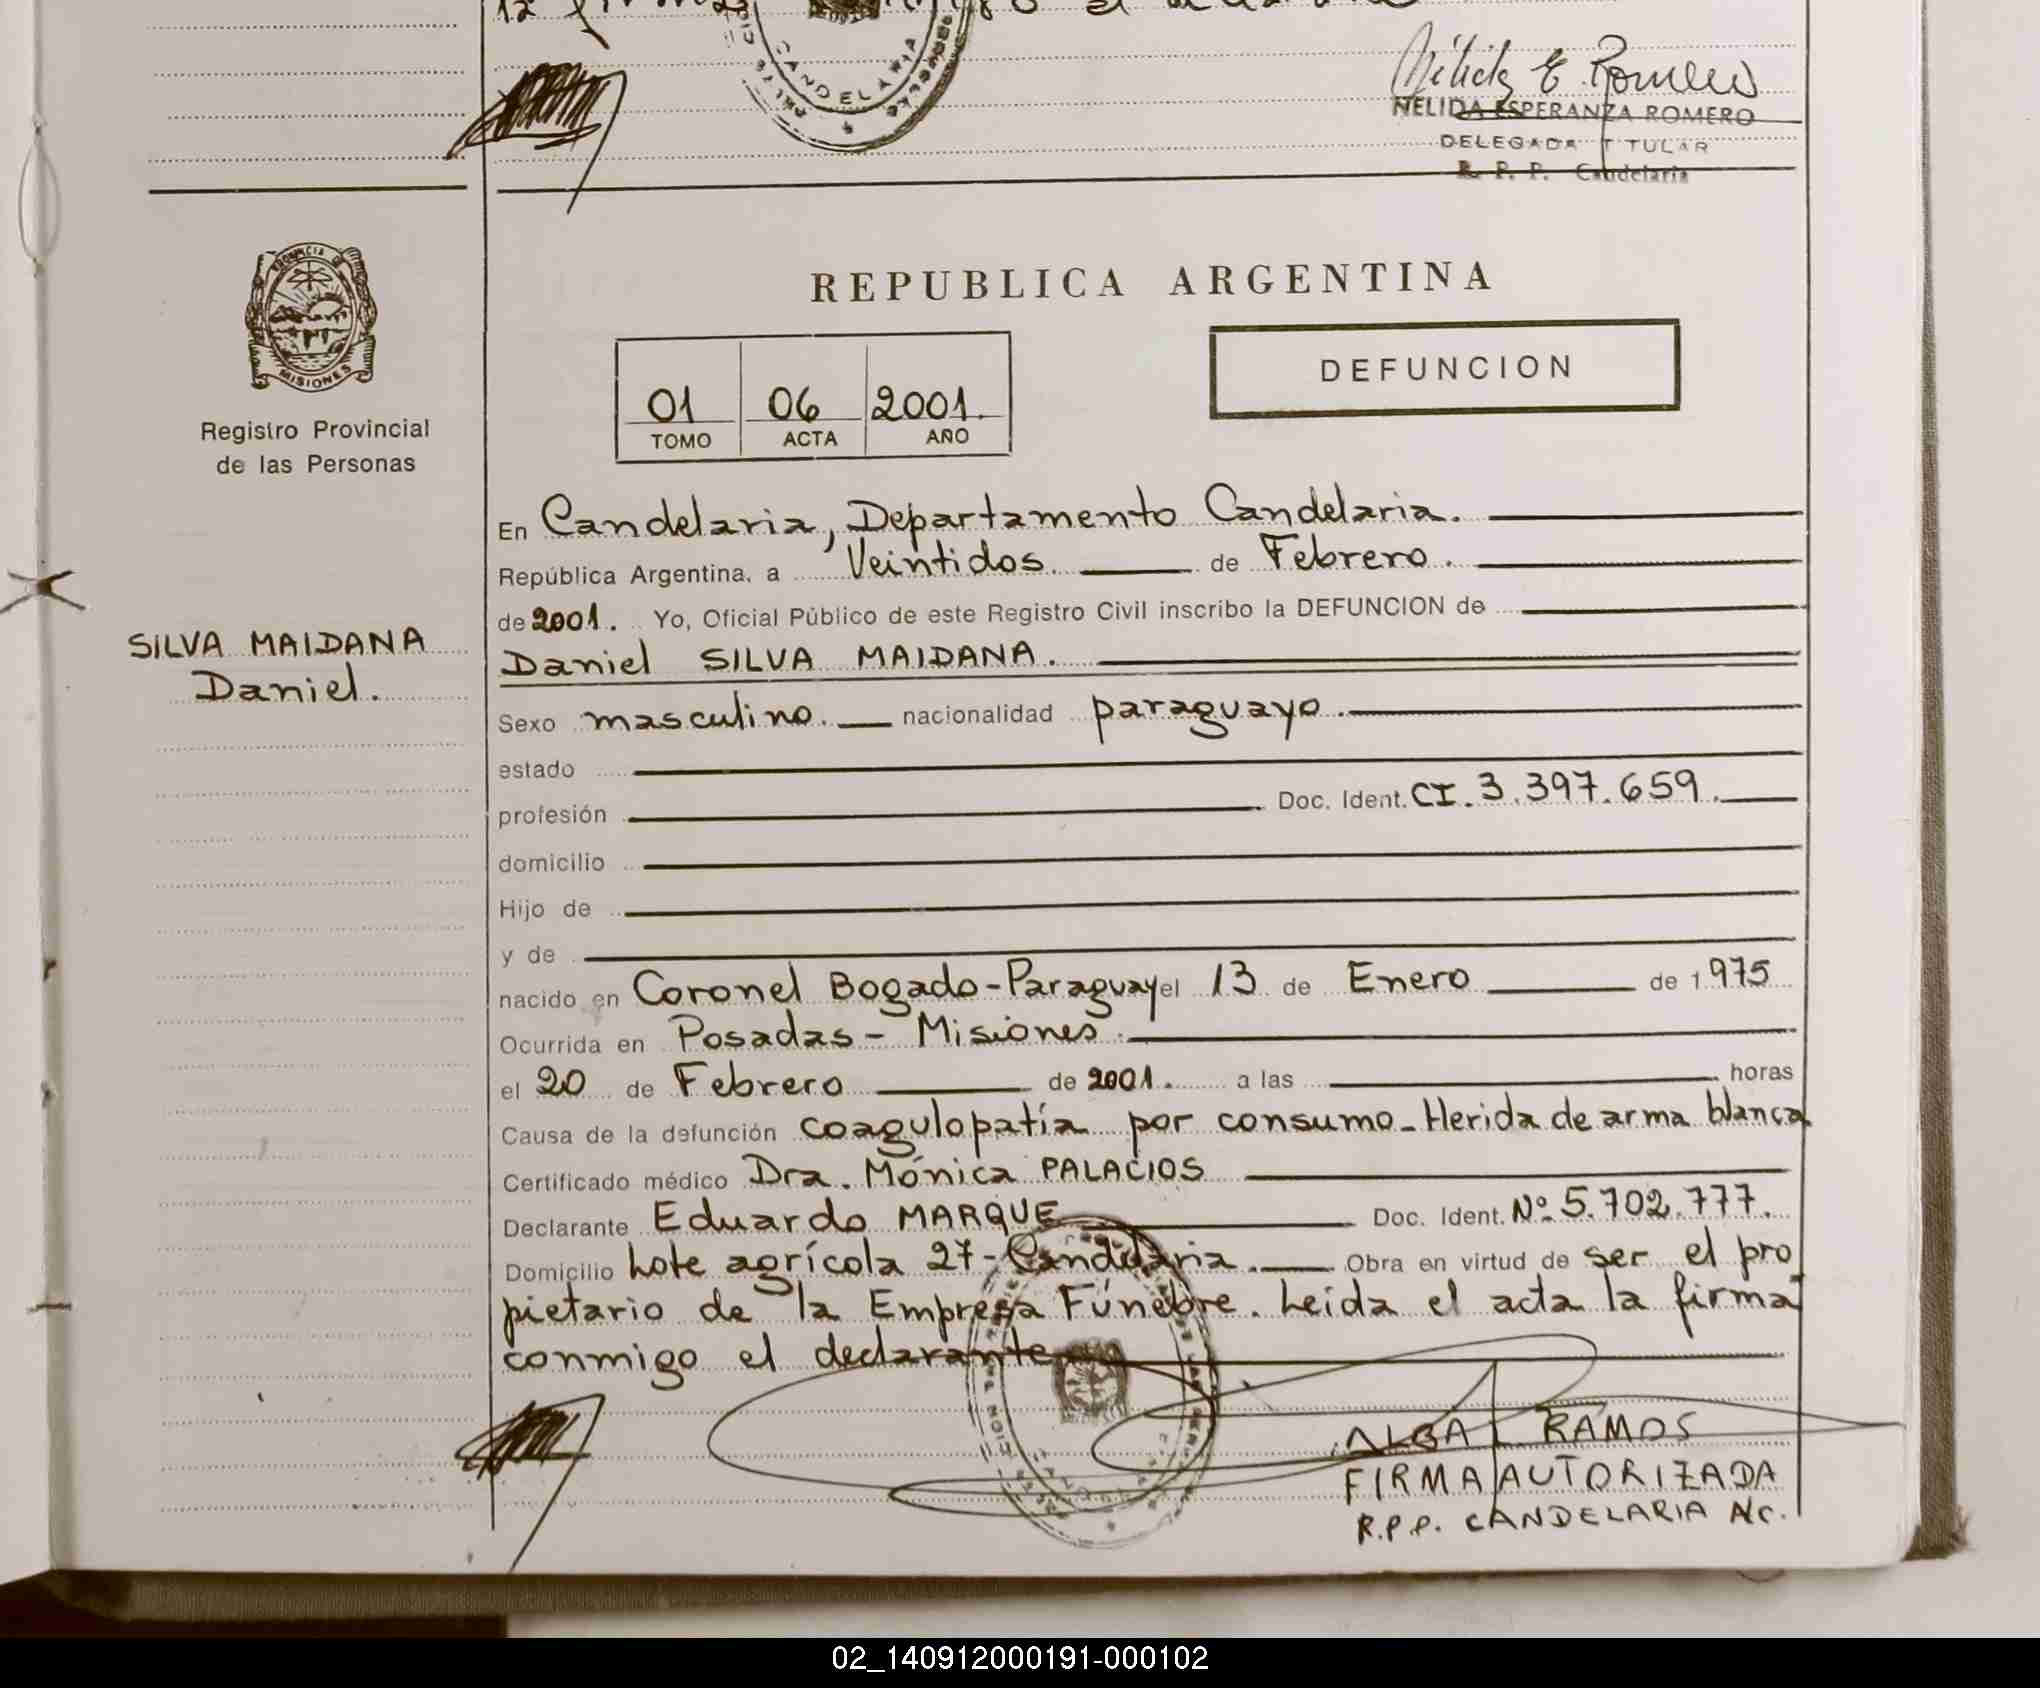 CANDELARIA
Nélida E. Romero
NELIDA ESPERANZA ROMERO
DELEGADA TITULAR
R. P. P. Candelaria
PROVINCIA DE
MISIONES
Registro Provincial
de las Personas
REPUBLICA ARGENTINA
DEFUNCION
01 06 2001.
TOMO ACTA AÑO
En Candelaria, Departamento Candelaria.
República Argentina, a Veintidos de Febrero.
de 2001. Yo, Oficial Público de este Registro Civil inscribo la DEFUNCION de
SILVA MAIDANA
Daniel.
Daniel SILVA MAIDANA.
Sexo masculino. nacionalidad paraguayo.
estado
profesión Doc. Ident. CI. 3.397.659.
domicilio
Hijo de
y de
nacido en Coronel Bogado-Paraguay el 13 de Enero de 1975
Ocurrida en Posadas - Misiones.
el 20 de Febrero de 2001. a las horas
Causa de la defunción coagulopatía por consumo - Herida de arma blanca
Certificado médico Dra. Mónica PALACIOS
Declarante Eduardo MARQUE Doc. Ident. Nº 5.702.777.
Domicilio Lote agrícola 27 - Candelaria. Obra en virtud de ser el pro
pietario de la Empresa Fúnebre. Leída el acta la firma
conmigo el declarante
ALBA L. RAMOS
FIRMA AUTORIZADA
R.P.P. CANDELARIA A/C.
02_140912000191-000102